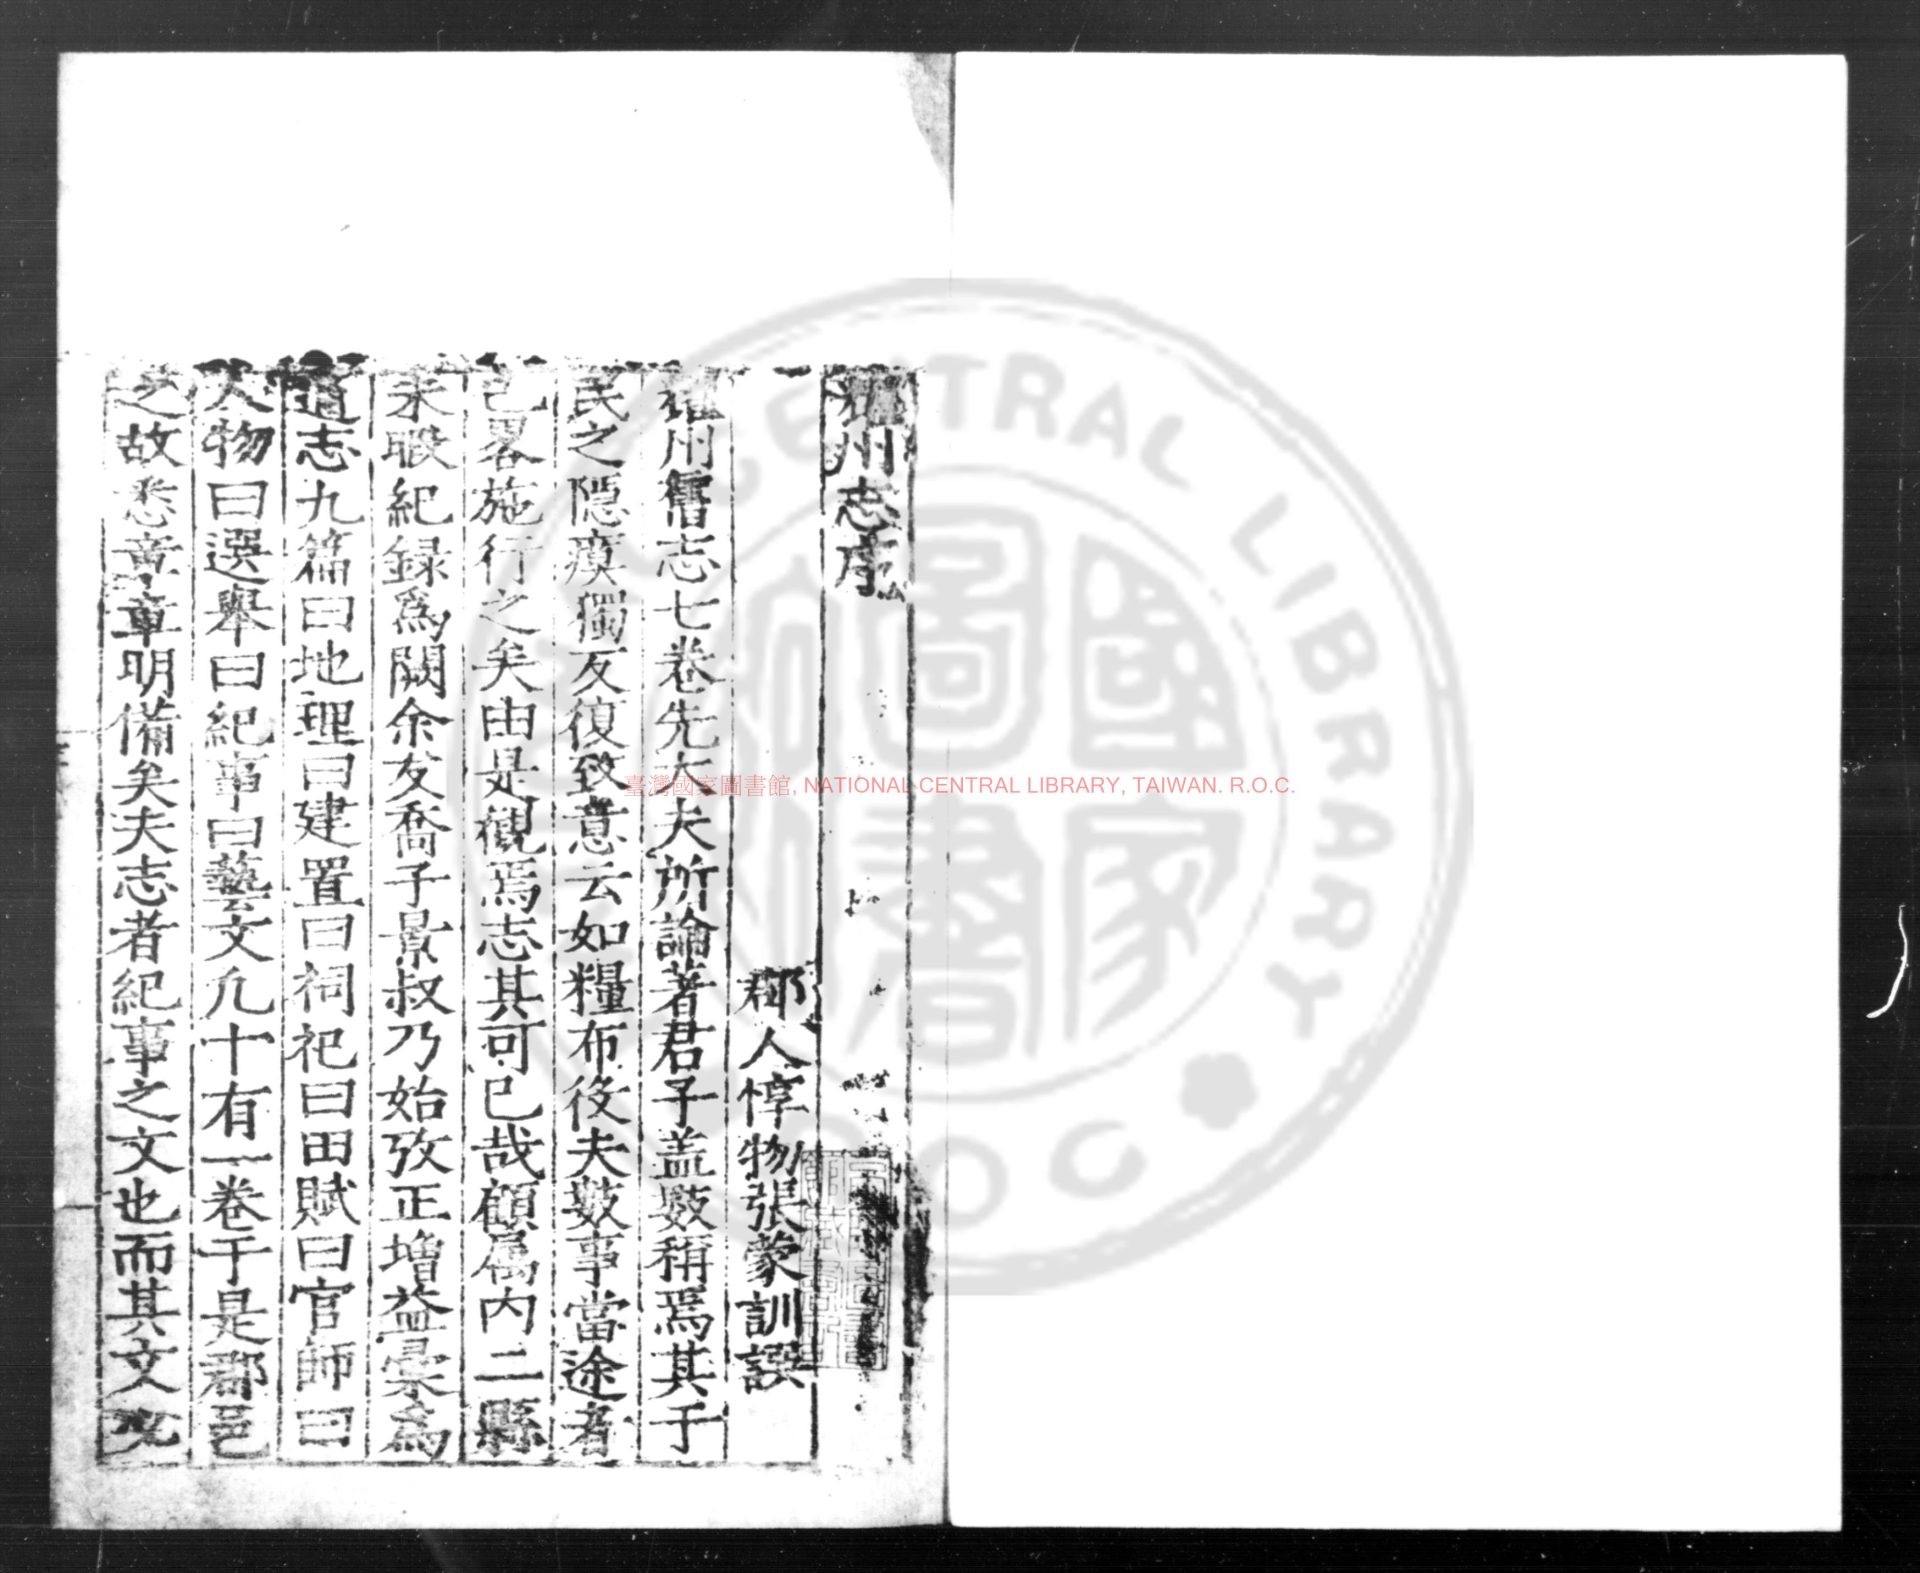 耀州志序
郡人惇物張蒙訓譔
耀州舊志七卷先大夫所論著君子盖數稱焉其于
民之隠瘼獨反復致意云如糧布役夫數事當途者
已畧施行之矣由是觀焉志其可已哉顧属内二縣
未暇紀録爲闕余友喬子景叔乃始攷正增益彙爲
道志九篇曰地理曰建置曰祠祀曰田賦曰官師曰
人物曰選舉曰紀事曰藝文凢十有一卷于是郡邑
之故悉章章明備矣夫志者紀事之文也而其文
臺灣國家圖書館, NATIONAL CENTRAL LIBRARY, TAIWAN. R.O.C.
CENTRAL LIBRARY
國家圖書